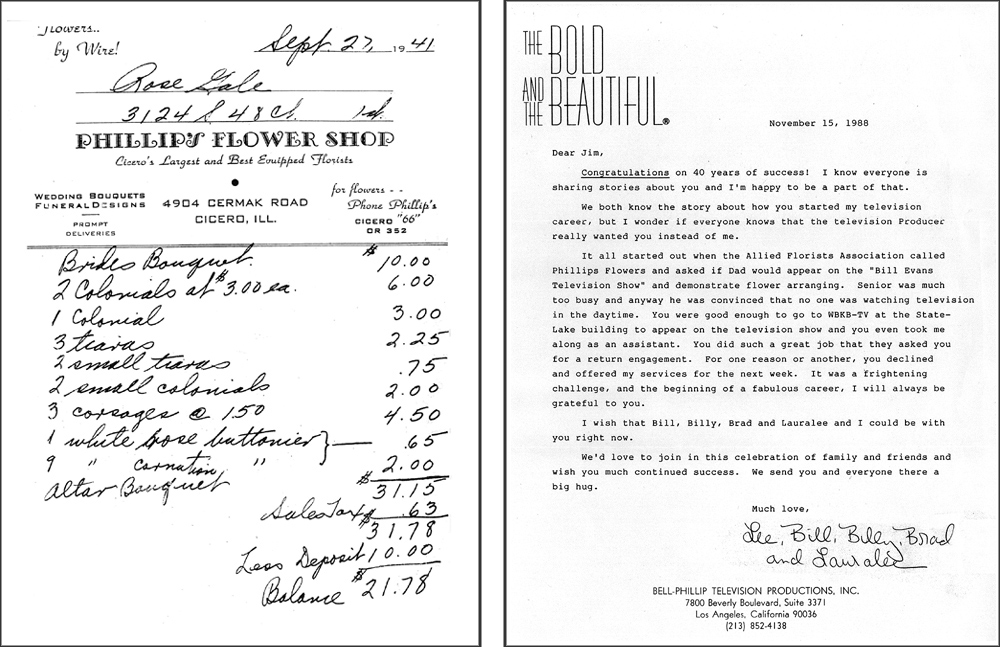 Flowers..
by Wire!
Sept. 27, 1941
Rose Gale
3124 S 48 Ct.
PHILLIP'S FLOWER SHOP
Cicero's Largest and Best Equipped Florists
WEDDING BOUQUETS
FUNERAL DESIGNS
PROMPT
DELIVERIES
4904 CERMAK ROAD
CICERO, ILL.
for flowers - -
Phone Phillip's
CICERO "66"
OR 352
Brides Bouquet. $10.00
2 Colonials at $3.00 ea. 6.00
1 Colonial 3.00
3 tiaras 2.25
2 small tiaras .75
2 small colonials 2.00
3 corsages @ 1.50 4.50
1 white rose buttonier } — .65
9 " carnation " 2.00
Altar Bouquet
$31.15
Sales Tax .63
$31.78
Less Deposit 10.00
Balance $21.78
THE BOLD
AND THE BEAUTIFUL®
November 15, 1988
Dear Jim,
Congratulations on 40 years of success! I know everyone is
sharing stories about you and I'm happy to be a part of that.
We both know the story about how you started my television
career, but I wonder if everyone knows that the television Producer
really wanted you instead of me.
It all started out when the Allied Florists Association called
Phillips Flowers and asked if Dad would appear on the "Bill Evans
Television Show" and demonstrate flower arranging. Senior was much
too busy and anyway he was convinced that no one was watching television
in the daytime. You were good enough to go to WBKB-TV at the State-
Lake building to appear on the television show and you even took me
along as an assistant. You did such a great job that they asked you
for a return engagement. For one reason or another, you declined
and offered my services for the next week. It was a frightening
challenge, and the beginning of a fabulous career, I will always be
grateful to you.
I wish that Bill, Billy, Brad and Lauralee and I could be with
you right now.
We'd love to join in this celebration of family and friends and
wish you much continued success. We send you and everyone there a
big hug.
Much love,
Lee, Bill, Billy, Brad
and Lauralee
BELL-PHILLIP TELEVISION PRODUCTIONS, INC.
7800 Beverly Boulevard, Suite 3371
Los Angeles, California 90036
(213) 852-4138